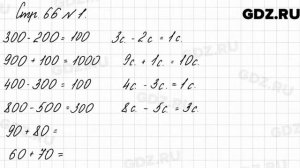 GDZ.RU
Стр. 66 № 1.
300 - 200 = 100 3с. - 2с = 1с.
900 + 100 = 1000 9с. + 1с. = 10с.
400 - 300 = 100 4с - 3с. = 1с.
800 - 500 = 300 8с - 5с = 3с.
90 + 80 =
60 + 70 =
GDZ.RU